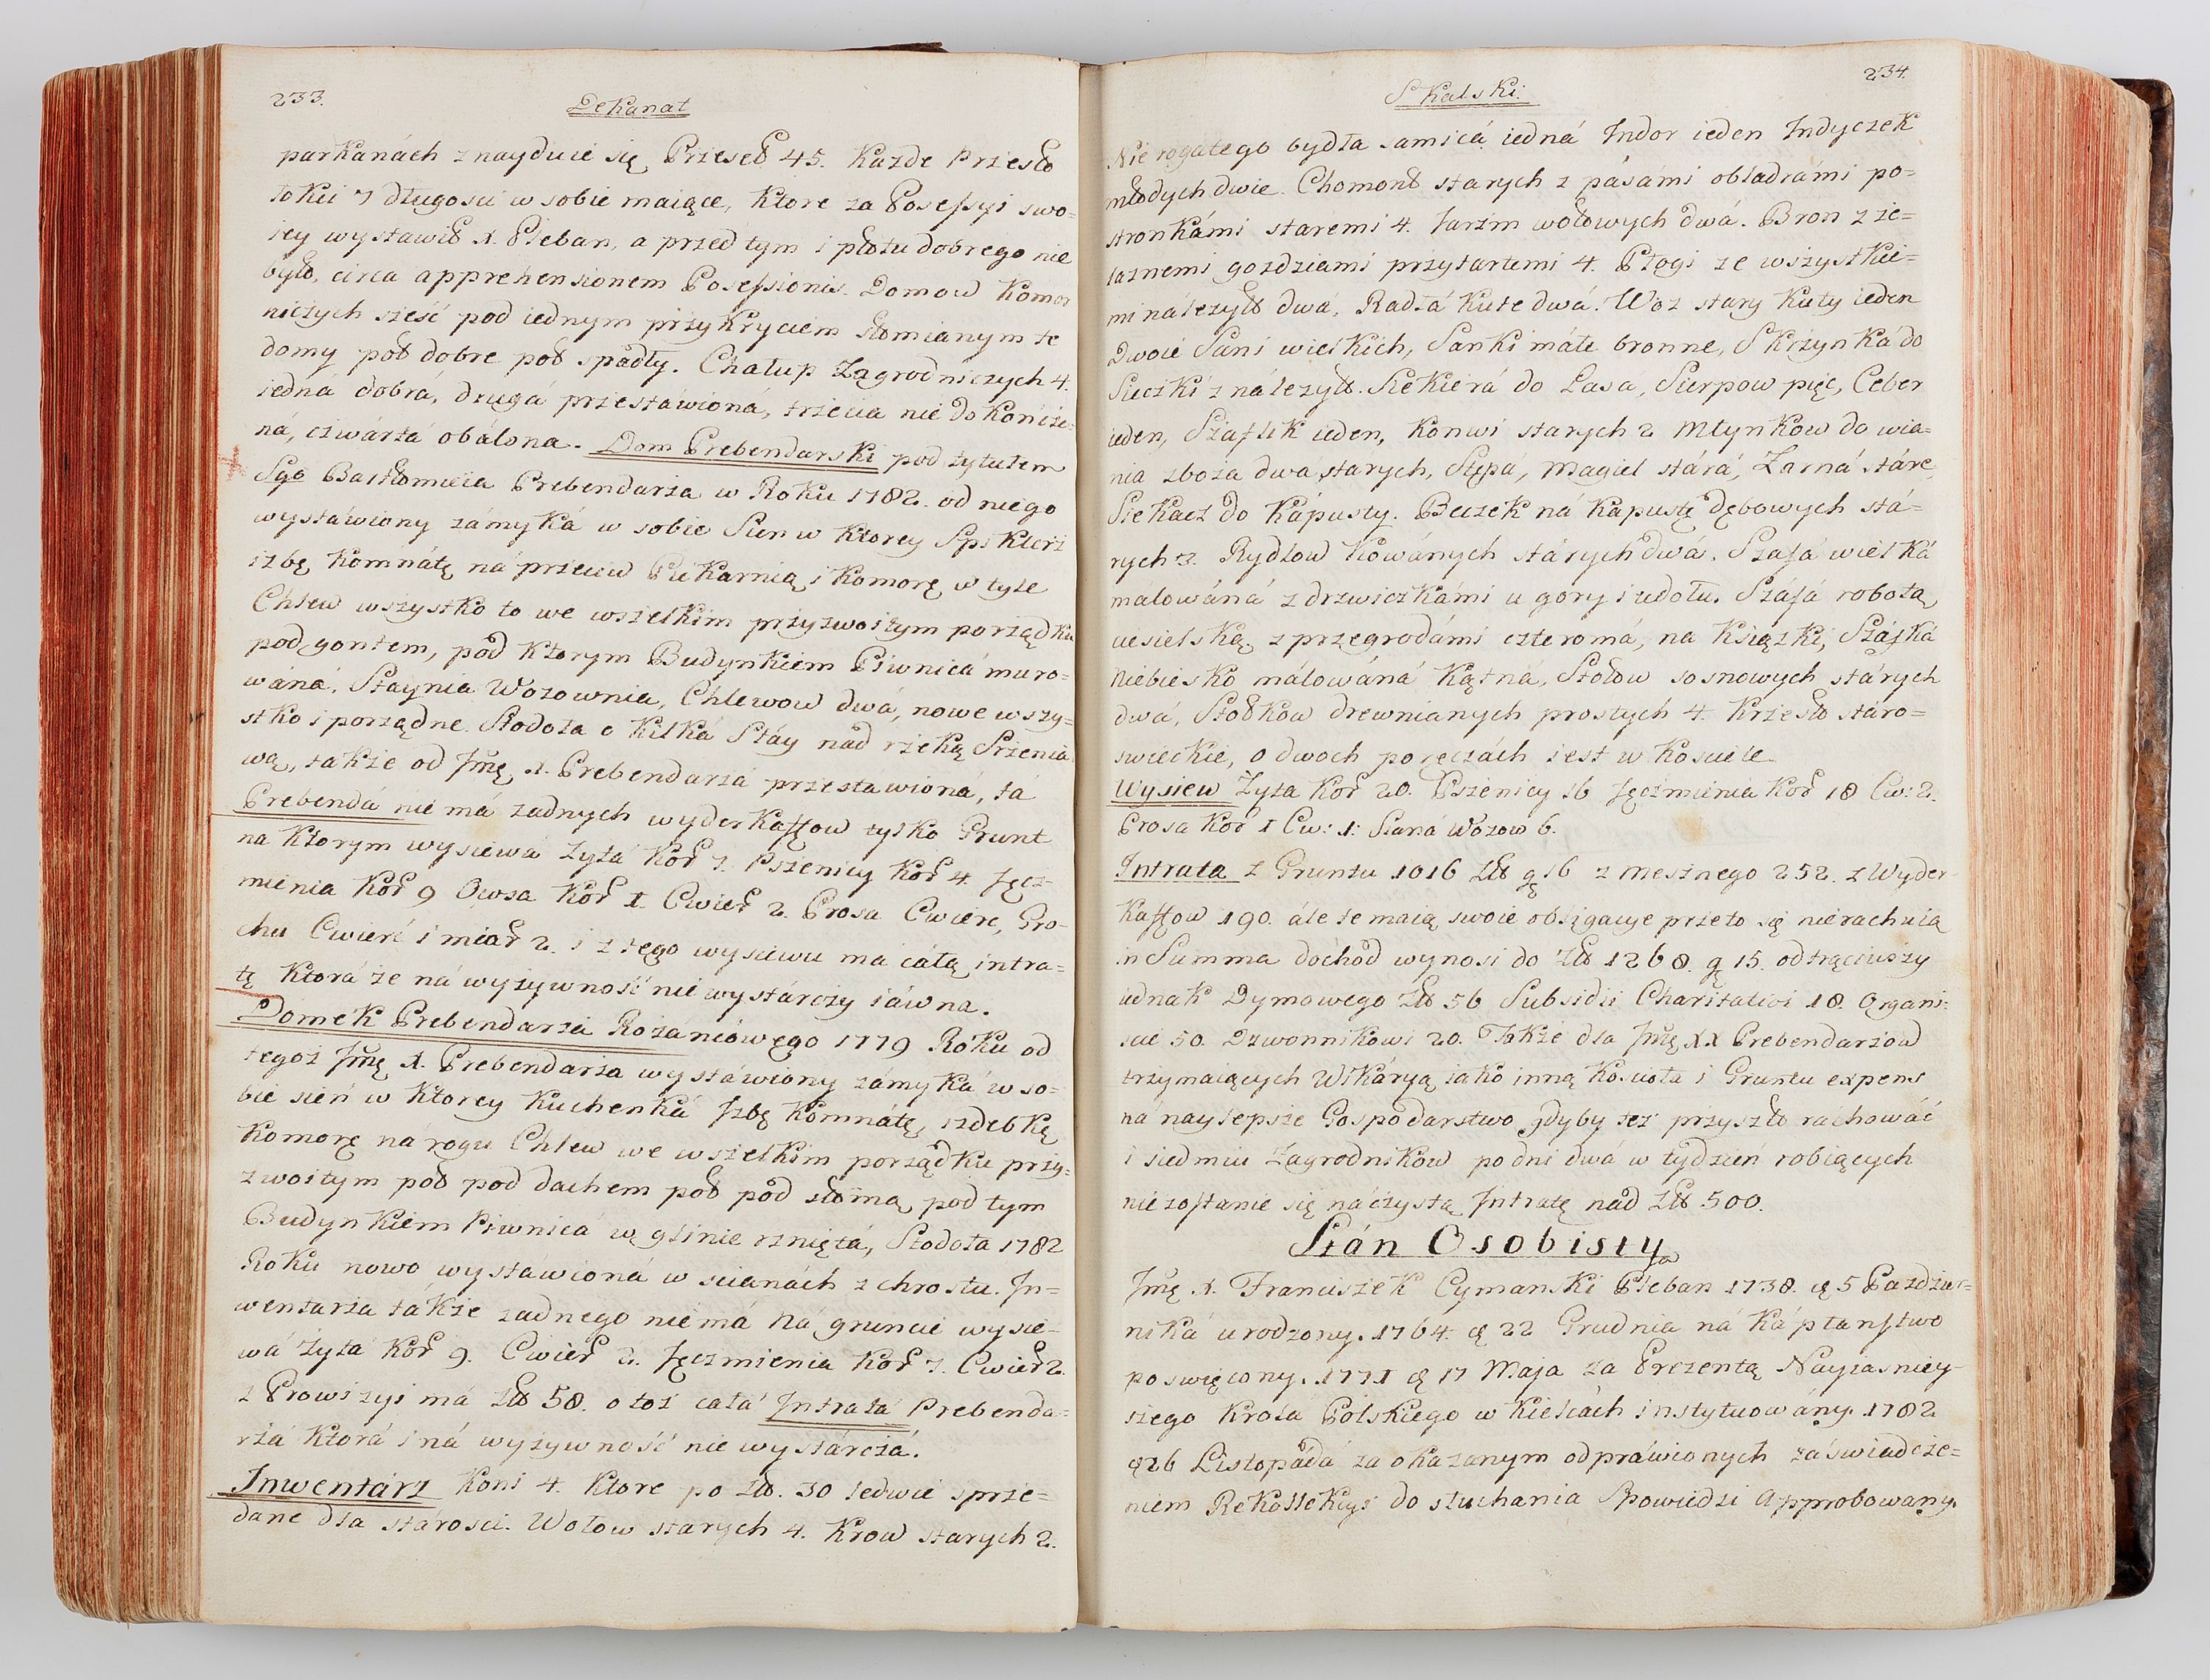 233.
Dekanat
parkanách znayduie się Przeseł 45. Kazde Przesło
łokci 7 długosci w sobie maiące, Ktore za Possessyi swo=
iey wystawił X. Pleban, a przed tym i płotu dobrego nie
było, circa apprehensionem Possessionis. Domow Komor
niczych sześć pod iednym przykryciem słomianym te
domy poł dobre poł spadły. Chałup Zagrodniczych 4.
iedná dobrá, drugá przestáwiona, trzecia nie dokończe=
na, czwárta obálona. Dom Prebendarski pod tytułem
Sgo Bartłomieia Prebendarza w Roku 1782. od niego
wystáwiony zámyká w sobie Sien w Ktorey Spiklerz
izbę Komnátę ná przeciw Piekarnią i Komorę w tyle
Chlew wszystko to we wszelkim przyzwoitym porządku
pod gontem, pod Ktorym Budynkiem Piwnicá muro=
wáná. Staynia Wozownia, Chlewow dwá, nowe wszy=
stko i porządne. Stodoła o Kilká Stáy nád rzeką Srzenia
wą, także od Jmę X. Prebendarzá przestawioná, tá
Prebendá nie má żadnych wyderkaffow tylko Grunt
na Ktorym wysiewá Zytá Kor 7. Pszenicy Kor 4. Jęcz=
mienia Kor 9 Owsa Kor 1. Cwier 2. Prosa Cwierć, Gro=
chu Cwierć i miar 2. i z tego wysiewu ma całą intra=
tę Ktorá że ná wyżywność nie wystárczy iáwna.
Domek Prebendarzá Rożáncowego 1779 Roku od
tegoż Jmę X. Prebendarza wystáwiony zámyká w so=
bie sień w Ktorey Kuchenká Jzbę Komnátę, izdebkę
Komorę ná rogu Chlew we wszelkim porządku przy=
zwoitym poł pod dachem poł pod słomą, pod tym
Budynkiem Piwnicá w glinie rznięta, Stodoła 1782
Roku nowo wystáwioná w scianách z chrostu. Jn=
wentarza tákże zadnego nie má Ná gruncie wysie=
wá żyta Kor 9. Cwier 2. Jęczmienia Kor 7. Cwier 2.
z Prowizyi má Zł 58. otoż całá Jntratá Prebenda=
rzá Ktorá i ná wyżywność nie wystárczá.
Jnwentárz Koni 4. Ktore po Zł. 30 ledwie sprze=
dane dla stárosci. Wołow starych 4. Krow starych 2.
234.
Skalski.
Nierogatego bydła samicá iedná Jndor ieden Jndyczek
młodych dwie. Chomont starych z pásami obladrámi po=
stronkámi staremi 4. Jarzm wołowych dwá. Bron z że=
laznemi gozdziami przytartemi 4. Pługi ze wszystkie=
mi náleżył dwá, Radłá Kute dwá. Woz stary Kuty ieden
Dwoie Sáni wielkich, Sanki máłe bronne, Skrzynká do
Sieczki z náleżył. Siekierá do Lasá, Sierpow pięc, Ceber
ieden, Száflik ieden, Konwi starych 2 Młynkow do wia=
nia zboża dwá starych, Stępá, Magiel stárá, Żarná stáre
Siekacz do Kápusty. Beczek ná Kápustę dębowych stá=
rych 3. Rydlow Kowánych stárych dwá. Szafá wielká
málowáná z drzwiczkámi u gory i udołu. Száfá robotą
ciesielską z przegrodámi czteromá, na Książki, Száfká
Niebiesko málowáná Kątná, Stołow sosnowych stárych
dwá, Stołkow drewnianych prostych 4. Krzesło stáro=
swieckie, o dwoch poręczách iest w Kosciele
Wysiew Żyta Kor 20. Pszenicy 16 Jęczmienia Kor 18 Cw: 2.
Prosa Kor 1 Cw: 1: Siana Wozow 6.
Jntrata z Gruntu 1016 Zł g 16 z mesznego 252. z Wyder=
kaffow 190. ále te maią swoie obligacye przeto się nierachuią
in Summa dochod wynosi do Zł 1268. g 15. odtrąciwszy
iednak Dymowego Zł 56 Subsidii Charitativi 18. Organi=
scie 50. Dzwonnikowi 20. Tákże dla Jmę XX Prebendarzow
trzymaiących Wikáryą iáko inną Koscioła i Gruntu expens
ná naylepsze Gospodarstwo gdyby też przyszło rachowáć
i siedmiu Zagrodnikow po dni dwá w tydzień robiących
nie zostanie się ná czystą Jntratę nád Zł 500.
Stán Osobisty
Jmę X. Franciszek Cymanski Pleban 1738. d 5 Pazdzier=
niká urodzony. 1764. d 22 Grudnia ná Kápłanstwo
poswięcony. 1771 d 17 Maja za Prezentą Nayiasniey=
szego Krola Polskiego w Kielcách instytuowány. 1782
d 26 Listopádá za okazanym odpráwionych záświadcze=
niem Rekollekcyi do słuchania Spowiedzi approbowany.